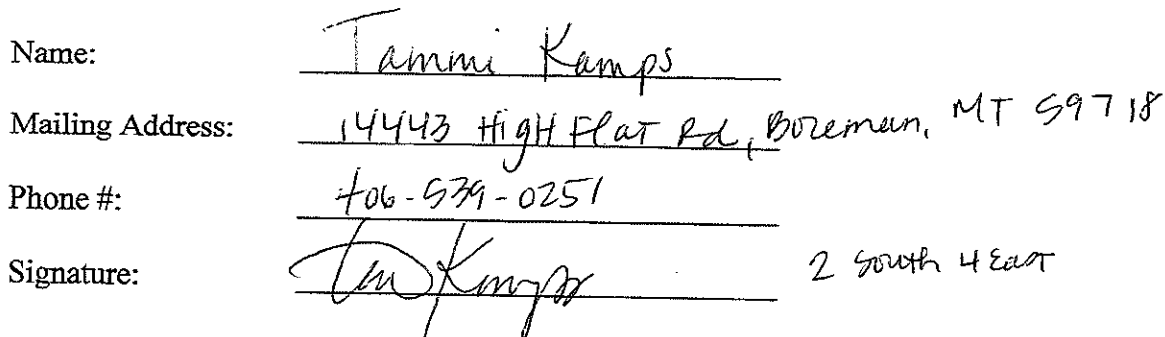 Name: Tammi Kamps
Mailing Address: 14443 High Flat Rd, Bozeman, MT 59718
Phone #: 406-539-0251
Signature: Kamps
2 South 4 East